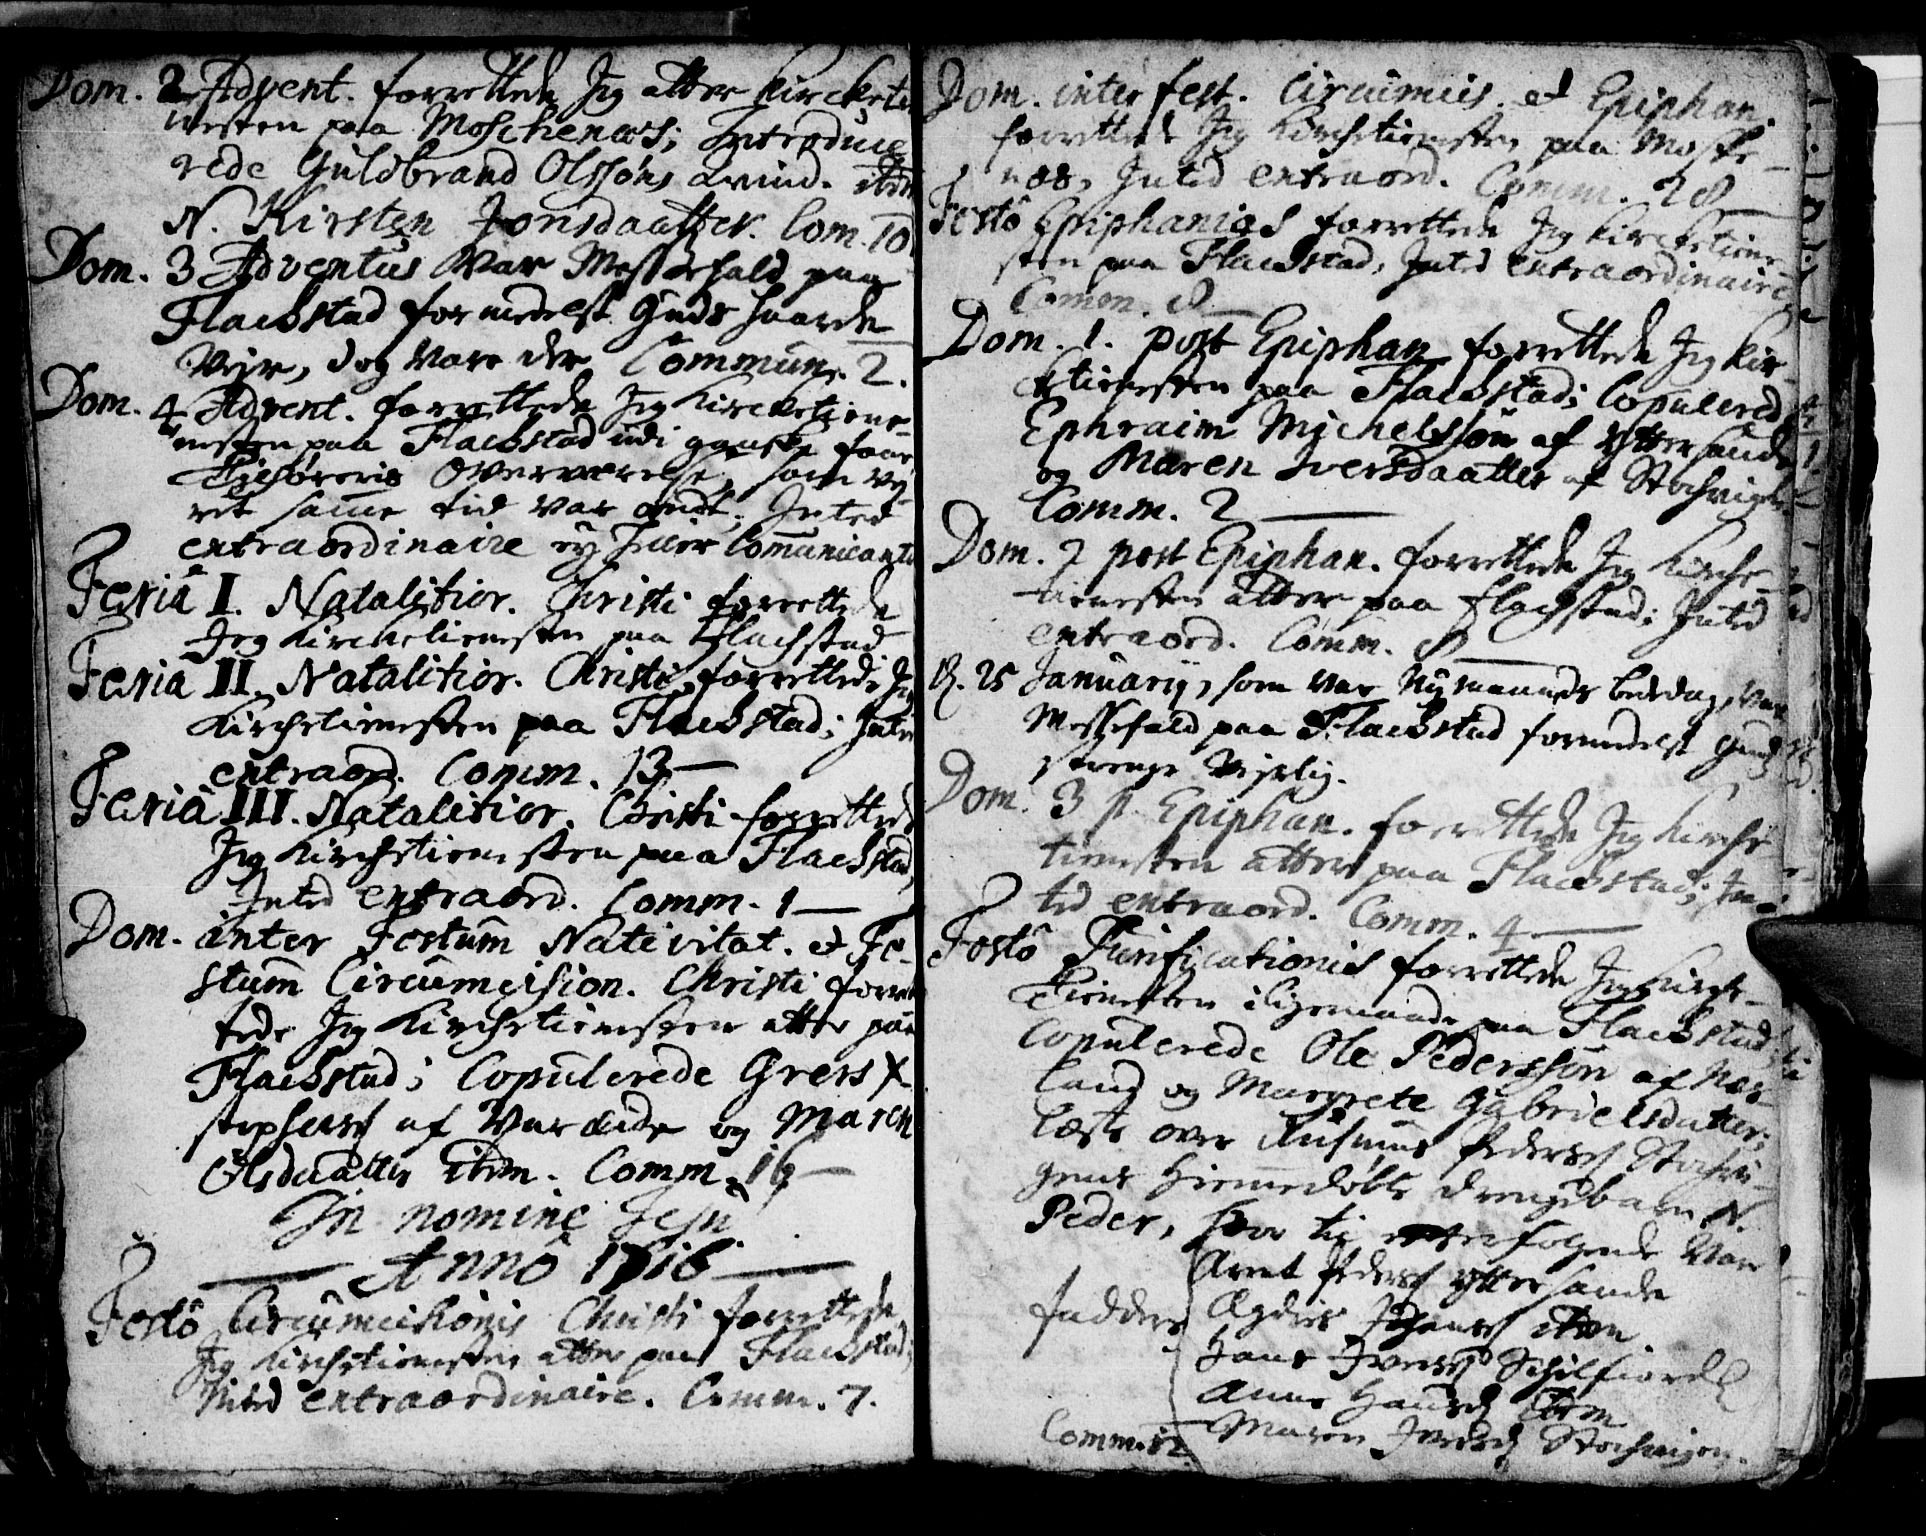 Dom. 2 Advent. forrettede Jeg atter Kircketi
nesten paa Moschenæs; Introduce
rede Guldbrand Olssøns qvind. item
N. Kirsten Jonsdaatter. Com. 10
Dom. 3 Adventus Var Messefald paa
Flachstad formedelst Guds haarde
Veyr, dog Vare der Commun. 2.
Dom. 4 Advent. forrettede Jeg Kircketiene-
nesten paa Flachstad udi ganske faae
Tilhøreris Overværelse, som vey
ret samme tid var ondt; Inted
extraordinaire ey heller Communicante
Feriâ I. Natalitior. Christi forrettede
Jeg Kircketienesten paa Flachstad
Feriâ II. Natalitior. Christi, forrettede Jeg
Kirchetienesten paa Flachstad; Inted
extraord. Comm. 13
Feriâ III. Natalitior. Christi forrettede
Jeg Kirchetienesten paa Flachstad,
Inted extraord. Comm. 1
Dom. inter Festum Nativitat. et Fe-
stum Circumcision. Christi forret
tede Jeg Kirchetienesten atter paa
Flachstad; Copulerede Grers X
stophers af Vareide og Maren
Olsdaatter ibm. Comm. 16
In nomine Jesu
Annô 1716
Festô Circumcisionis Christi forrettede
Jeg Kirchetienesten atter paa Flachstad;
Inted extraordinaire. Comm. 7.
Dom. inter fest. Circumcis. et Epiphan.
forrettede Jeg Kirchetienesten paa Moske-
næs, Inted extraord. Comm. 28
Festô Epiphanias forrettede Jeg Kircketiene-
sten paa Flachstad, Inted extraordinaire
Comm. 8
Dom. 1. post Epiphan forrettede Jeg Kir-
ketienesten paa Flachstad; Copulerede
Ephraim Michelssøn af Yttersande
og Maren Iversdaatter af Stochvigen
Comm. 2
Dom. 2 post Epiphan. forrettede Jeg Kirche-
tienesten atter paa Flachstad; Inted
extraord. Comm. 8
25 Januarij, som var Nymaaneds bededag, var
Messefald paa Flachstad formedelst Guds
strenge Veyrlig.
Dom. 3 p. Epiphan. forrettede Jeg Kirche
tienesten atter paa Flachstad; In-
ted extraord. Comm. 4
Festô Purificationis forrettede Jeg Kirche-
tienesten iligemaade paa Flachstad;
Copulerede Ole Pederssøn af Nas-
land og Margrete Gabrielsdatter;
læste over Rasmus Peders Stochvi-
gens hiemmedøbte drengebarn N.
Peder, hvor til efterfølgende Var
faddere
Arent Peders Yttersande
Johans ibm
Hans Ivers Schilfiord
Anne Hansd ibm
Maren Iversd Stochvigen.
Comm. 12